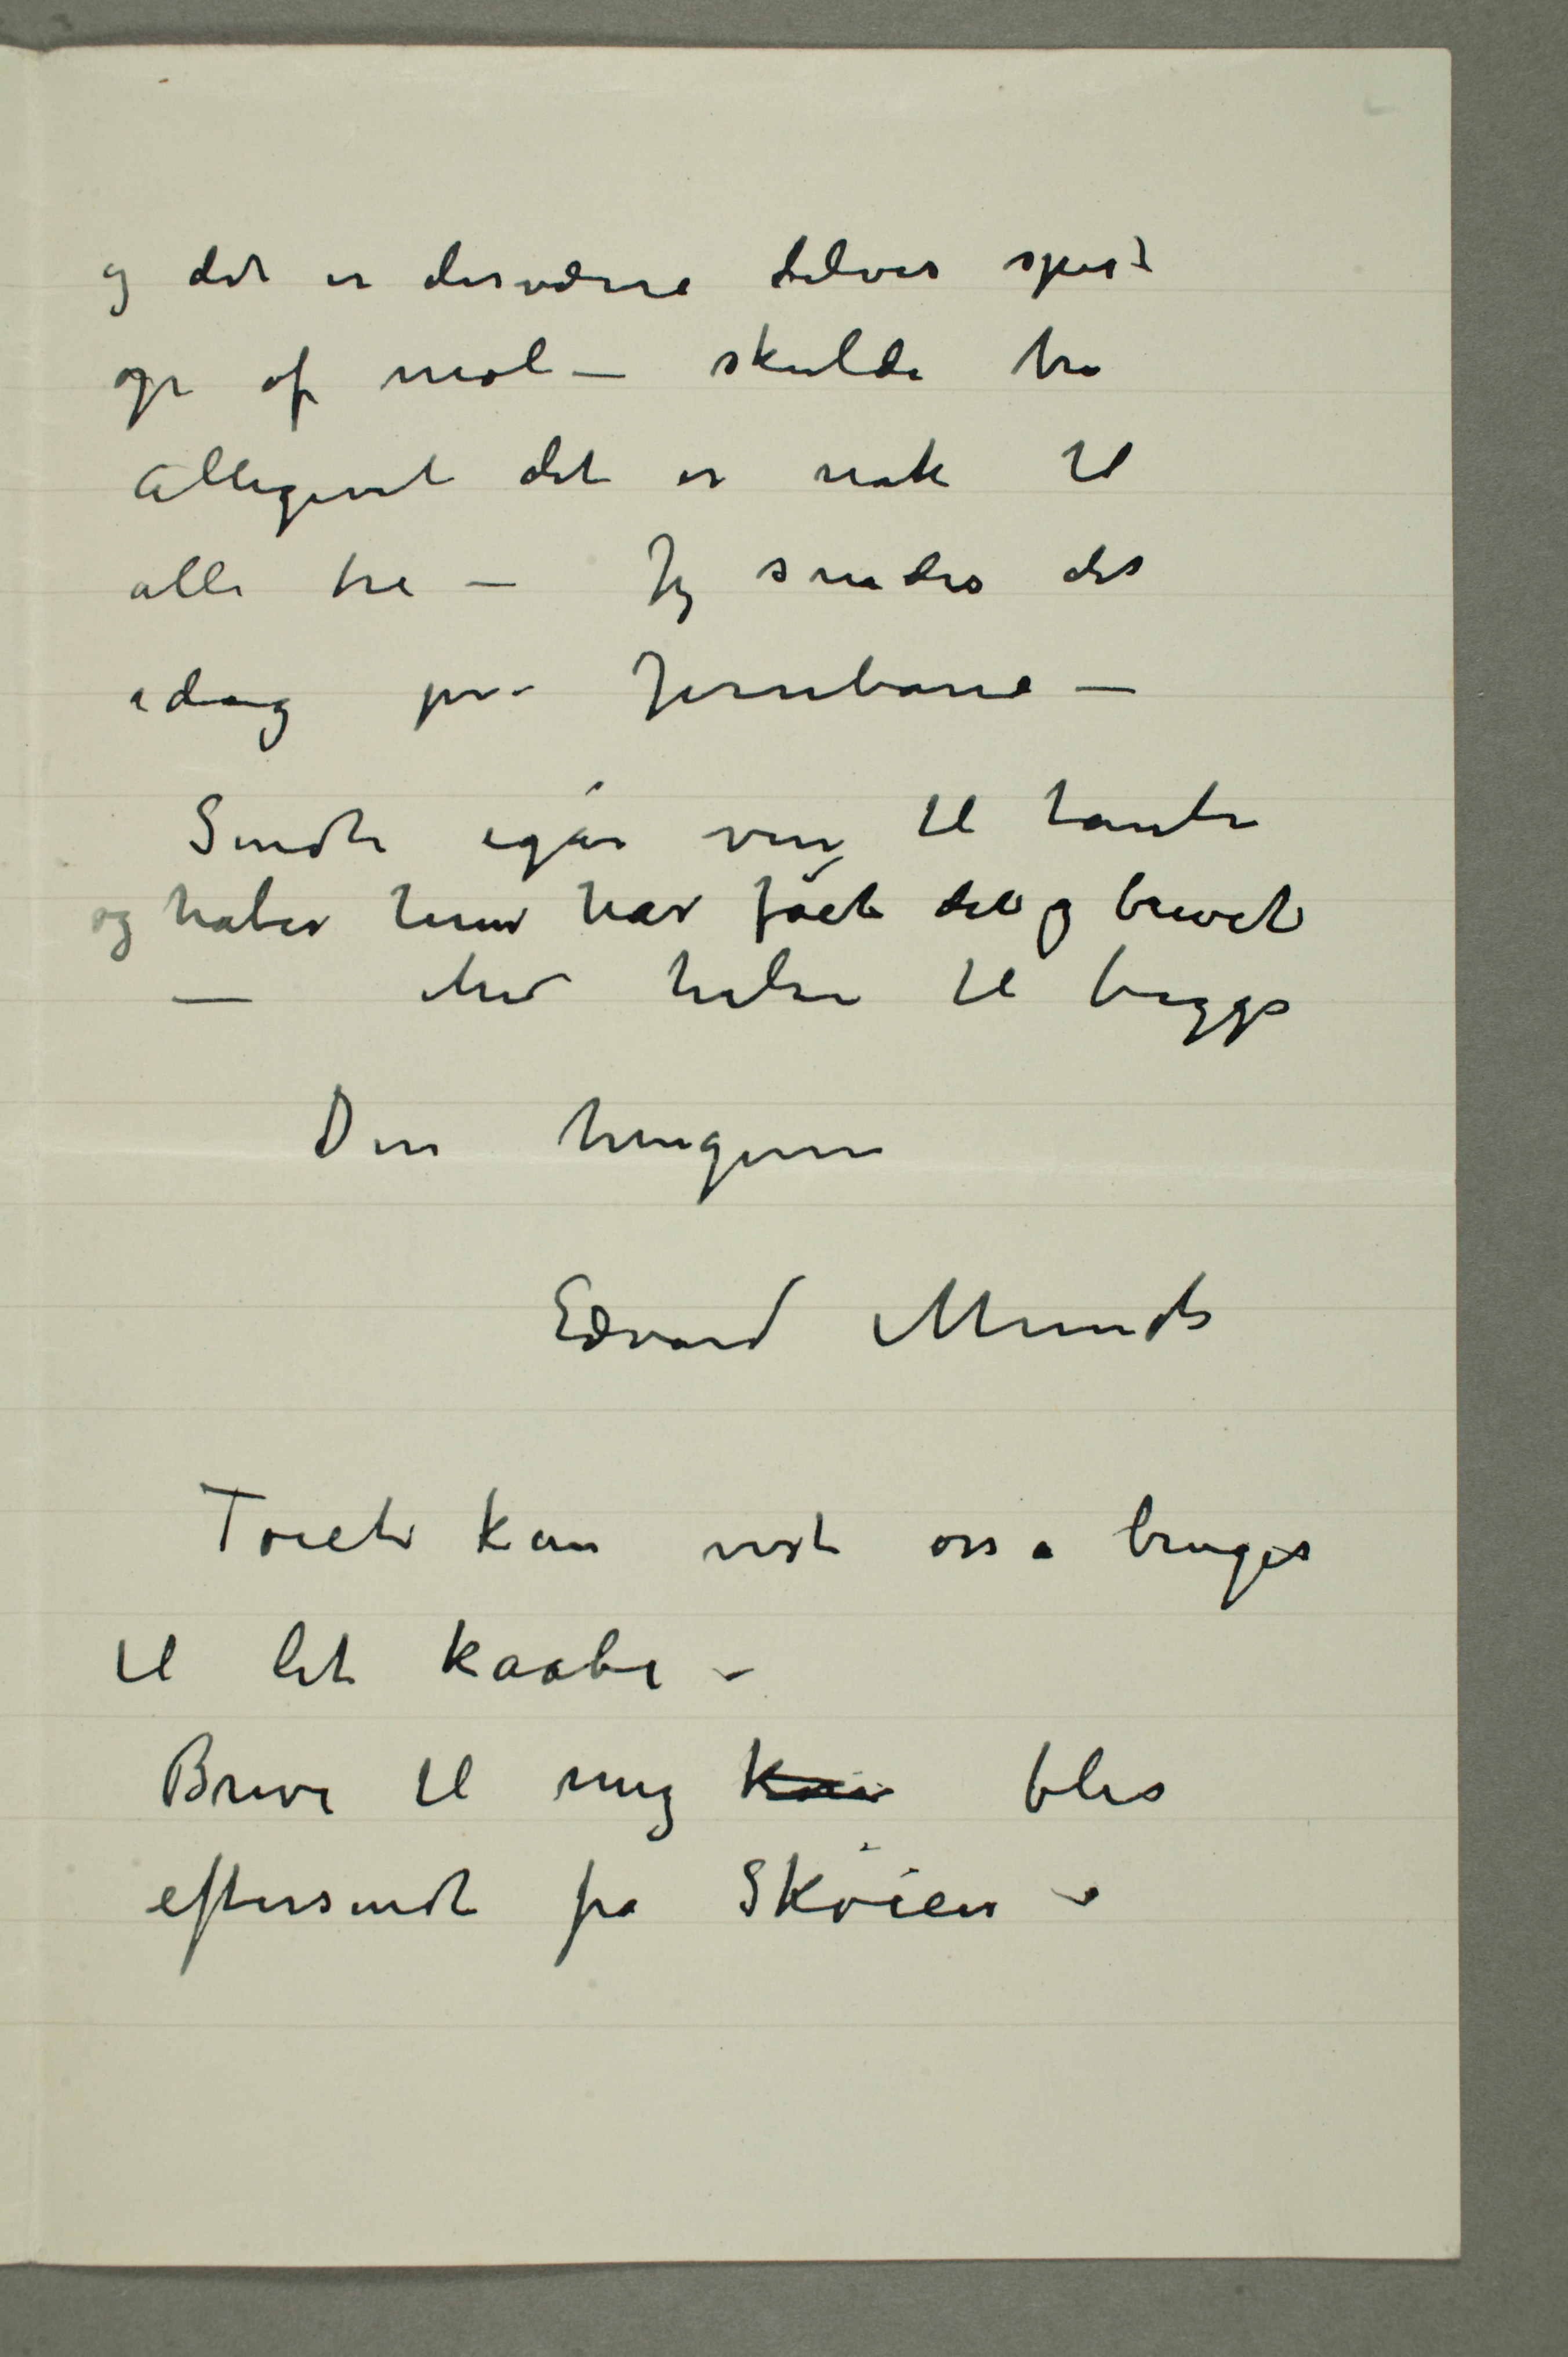 og det er desværre delvis spist
op af møl – skulde tro
alligevel det er nok til
alle tre – Jeg sender det
idag pr. Jernbane –
Sendte igår vin til tante
og håber hun har fået det og brevet
– Med hilsen til begge
Din hengivne
Edvard Munch
Tøiet kan vist osså bruges
til let kaabe –
Breve til mig blir
eftersendt fra Skøien –